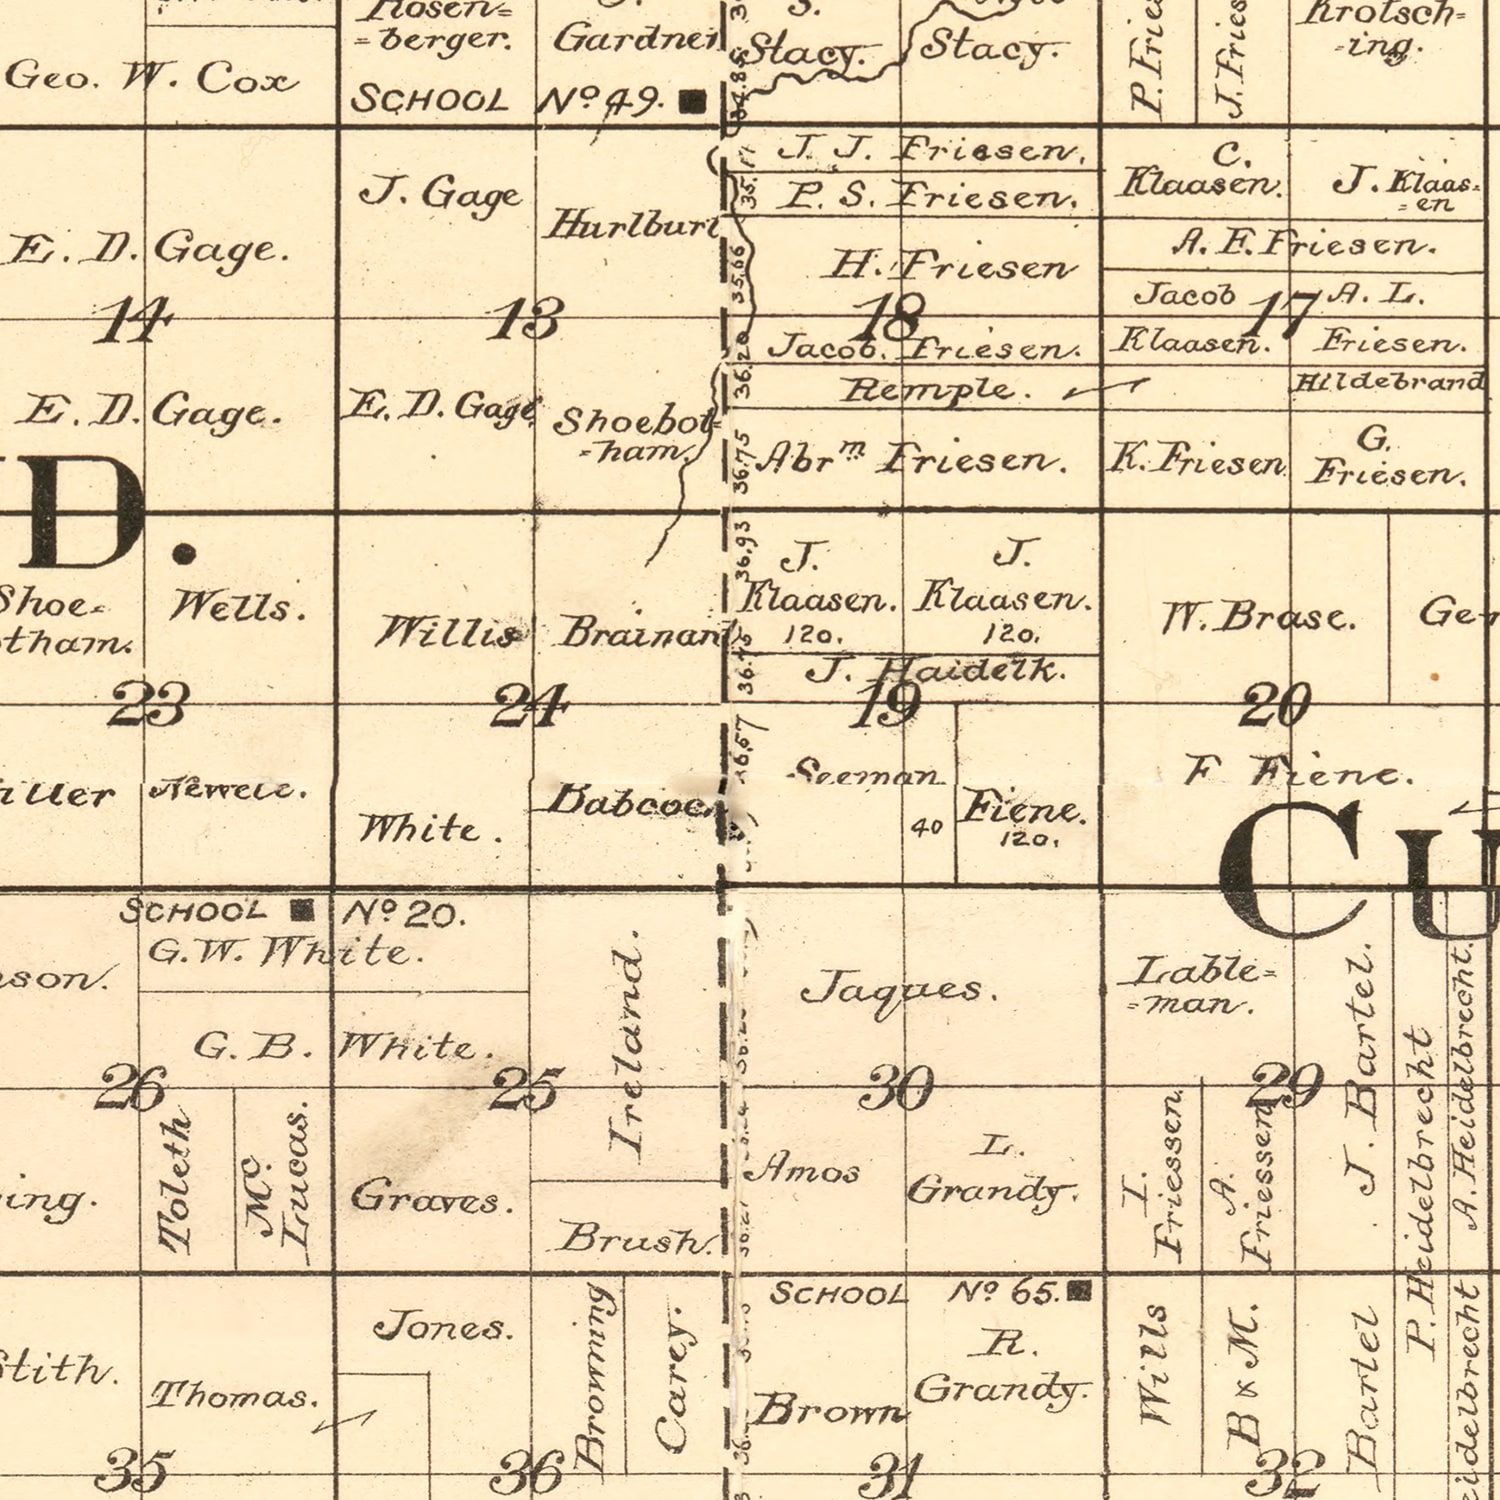 Rosen=
=berger.
Gardner
S.
Stacy.
Stacy.
P. Frie
J. Fries
Krotsch=
=ing.
Geo. W. Cox
SCHOOL No 49.
34.85
J. J. Friesen.
P. S. Friesen.
35.17
C.
Klaasen.
J. Klaas=
=en
J. Gage
Hurlburt
E. D. Gage.
H. Friesen
35.66
A. E. Friesen.
Jacob
A. L.
14
13
18
17
Jacob. Friesen.
Klaasen.
Friesen.
36.20
Remple.
Hildebrand
E. D. Gage.
E. D. Gage
Shoebot=
=ham.
36.75
Abr m Friesen.
K. Friesen
G.
Friesen.
D.
36.93
J.
Klaasen.
120.
J.
Klaasen.
120.
Shoe=
tham.
Wells.
Willis
Brainard
W. Brase.
Ge
J. Haidelk.
23
24
19
20
36.57
Seeman
40
Fiene.
120.
F Fiene.
Newele.
White.
Babcoc
CU
SCHOOL No 20.
G. W. White.
son.
Ireland.
Jaques.
Lable=
=man.
J. Bartel.
P. Heidelbrecht
A. Heidelbrecht.
G. B. White.
26
25
30
29
Toleth
Mc.
Lucas.
Graves.
Amos
L.
Grandy.
I.
Friessen.
A.
Friessen
ing.
Brush.
36.21
SCHOOL No 65.
Jones.
Browning
Carey.
R.
Grandy.
Brown
Wills
B & M.
Bartel
eidelbrecht
tith.
Thomas.
35
36
31
32